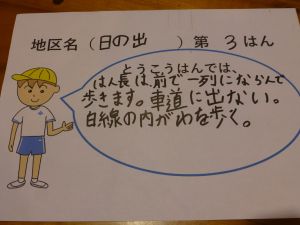 地区名（日の出　　）第 3 はん
とうこうはんでは、
はん長は、前で一列にならんで
歩きます。車道に出ない。
白線の内がわを歩く。